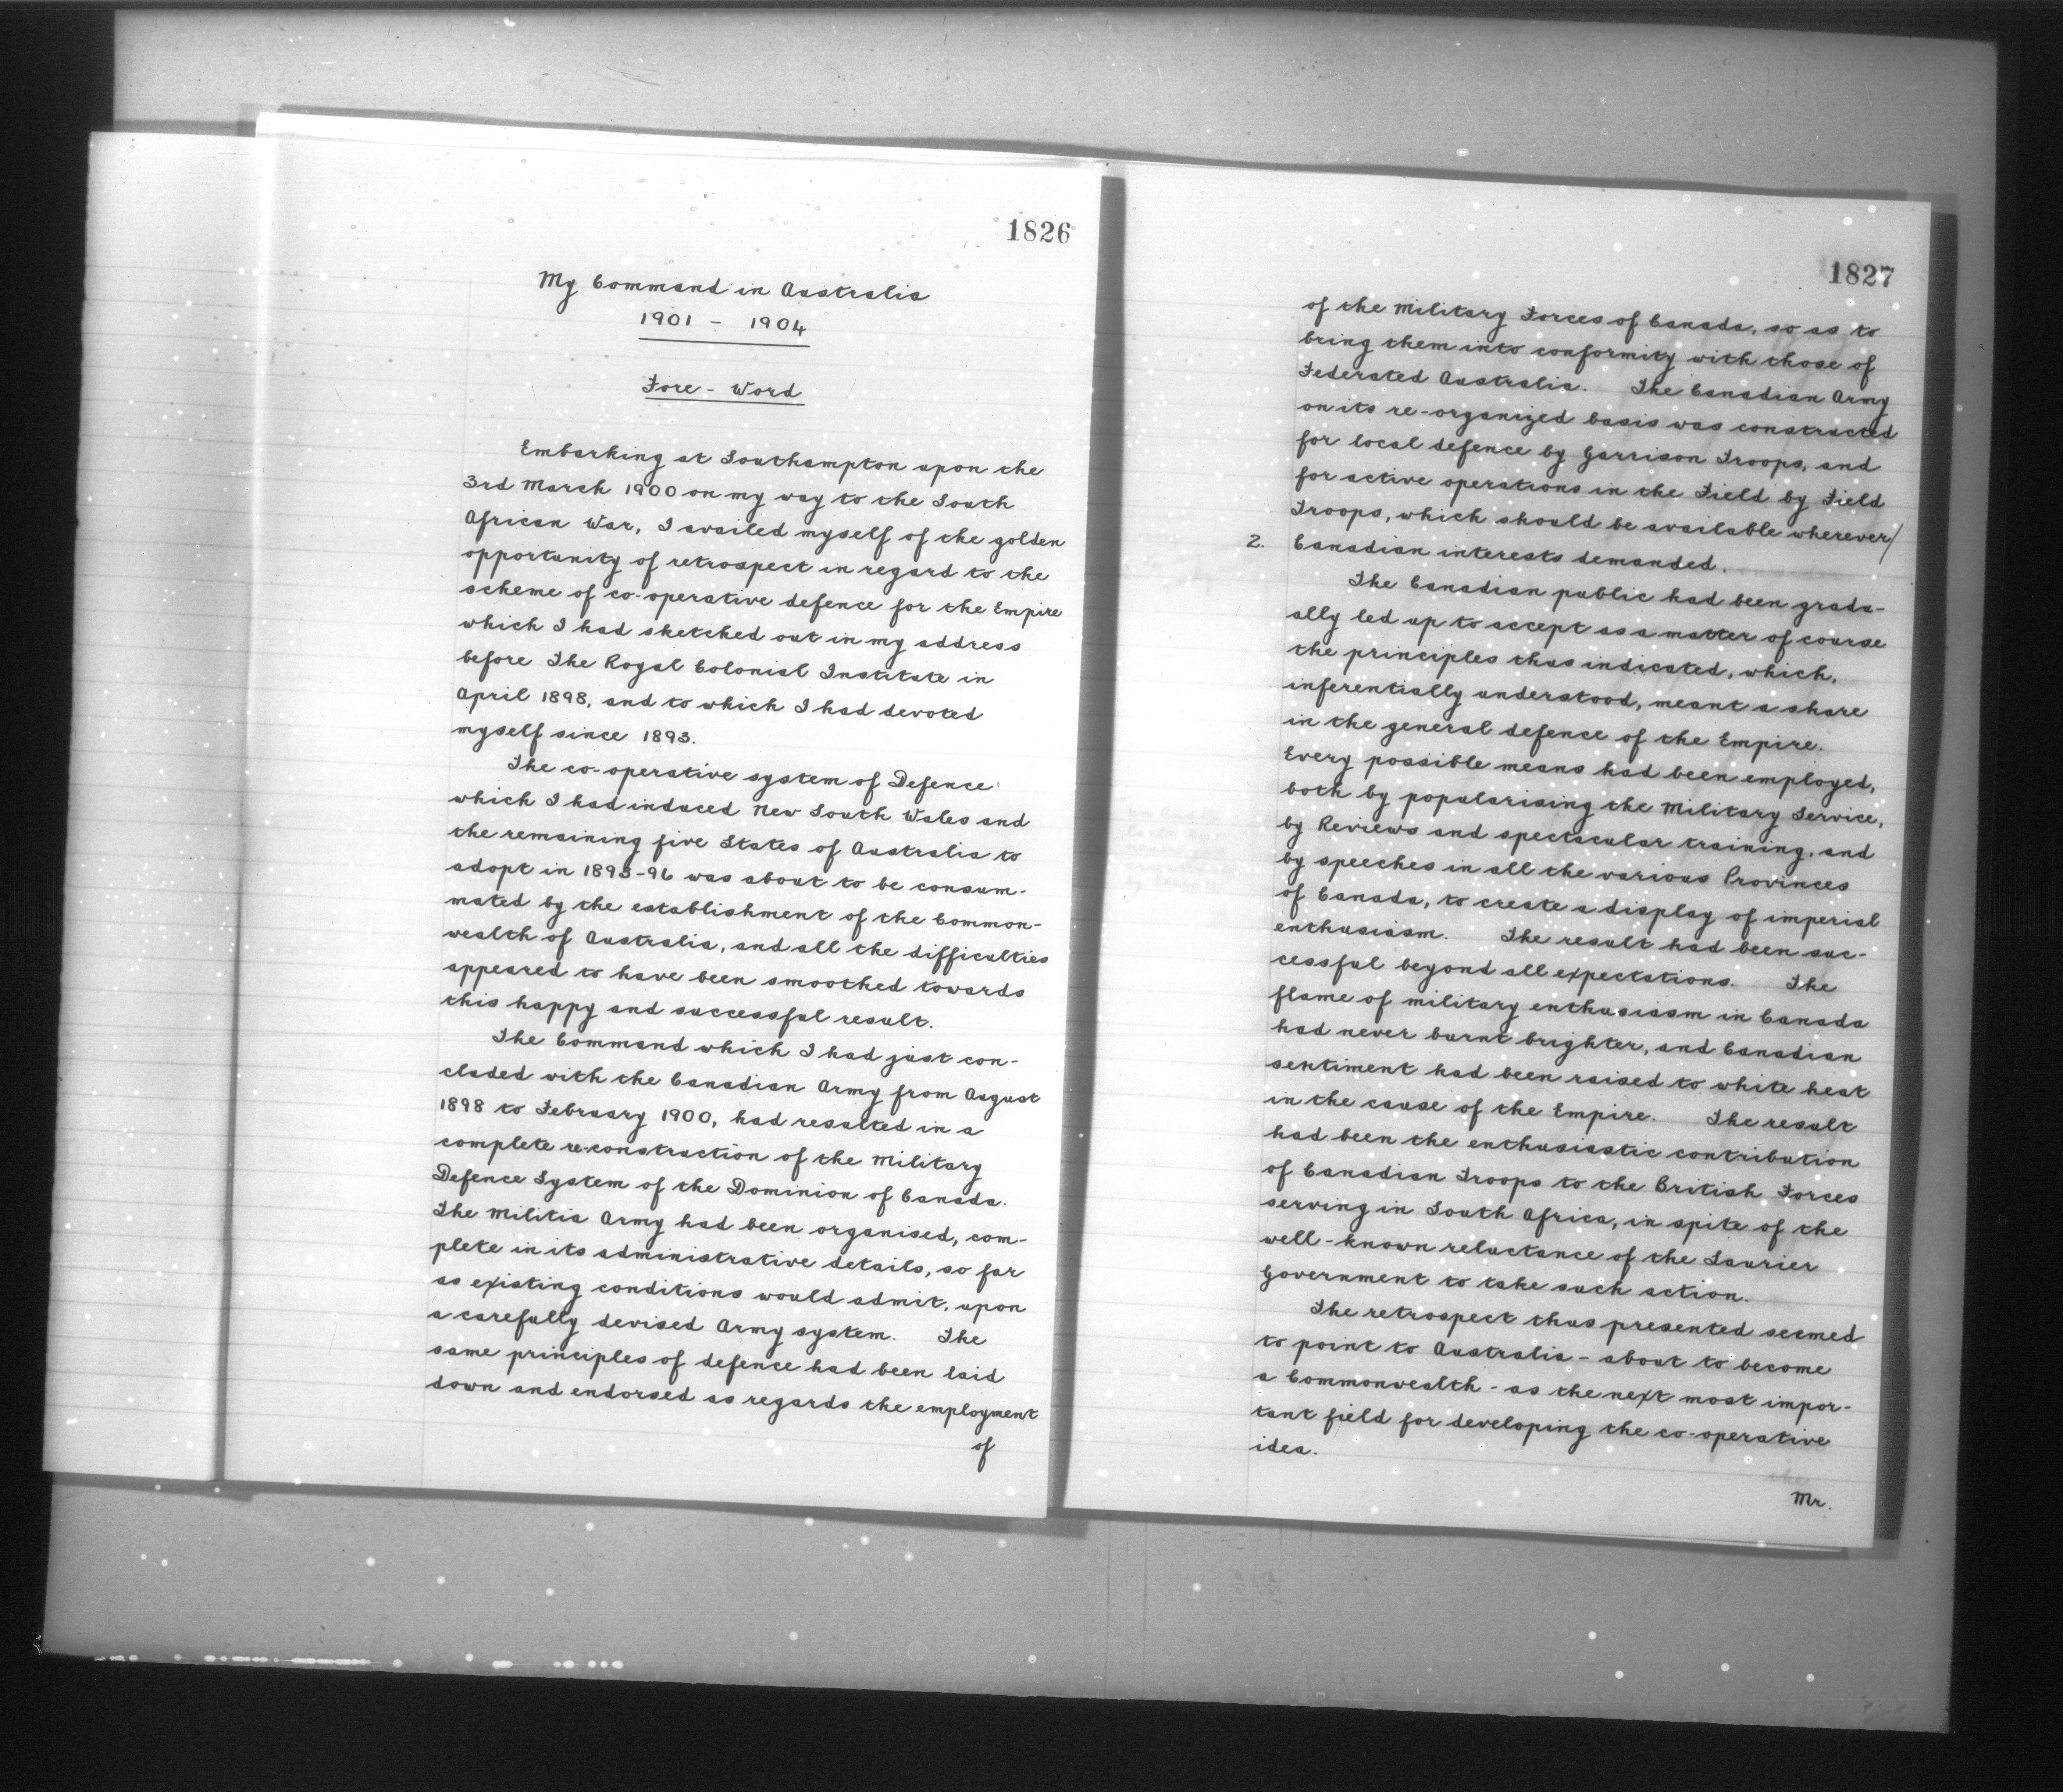 1826
My Command in Australia
1901 - 1904
Fore - Word
Embarking at Southampton upon the
3rd March 1900 on my way to the South
African War, I availed myself of the golden
opportunity of retrospect in regard to the
scheme of co-operative defence for the Empire
which I had sketched out in my address
before The Royal Colonial Institute in
April 1898, and to which I had devoted
myself since 1893.
The co-operative system of Defence
which I had induced New South Wales and
the remaining five States of Australia to
adopt in 1893-96 was about to be consum-
mated by the establishment of the Common-
wealth of Australia, and all the difficulties
appeared to have been smoothed towards
this happy and successful result.
The Command which I had just con-
cluded with the Canadian Army from August
1898 to February 1900, had resulted in a
complete re-construction of the Military
Defence System of the Dominion of Canada.
The Militia Army had been organised, com-
plete in its administrative details, so far
as existing conditions would admit, upon
a carefully devised Army system. The
same principles of defence had been laid
down and endorsed as regards the employment
of
1827
of the Military Forces of Canada, so as to
bring them into conformity with those of
Federated Australia. The Canadian Army
on its re-organized basis was constructed
for local defence by Garrison Troops, and
for active operations in the Field by Field
Troops, which should be available wherever/
2. Canadian interests demanded.
The Canadian public had been gradu-
ally led up to accept as a matter of course
the principles thus indicated, which,
inferentially understood, meant a share
in the general defence of the Empire.
Every possible means had been employed,
both by popularising the Military Service,
by Reviews and spectacular training, and
by speeches in all the various Provinces
of Canada, to create a display of imperial
enthusiasm. The result had been suc-
cessful beyond all expectations. The
flame of military enthusiasm in Canada
had never burnt brighter, and Canadian
sentiment had been raised to white heat
in the cause of the Empire. The result
had been the enthusiastic contribution
of Canadian Troops to the British Forces
serving in South Africa, in spite of the
well-known reluctance of the Laurier
Government to take such action.
The retrospect thus presented seemed
to point to Australia - about to become
a Commonwealth - as the next most impor-
tant field for developing the co-operative
idea.
the
Mr.